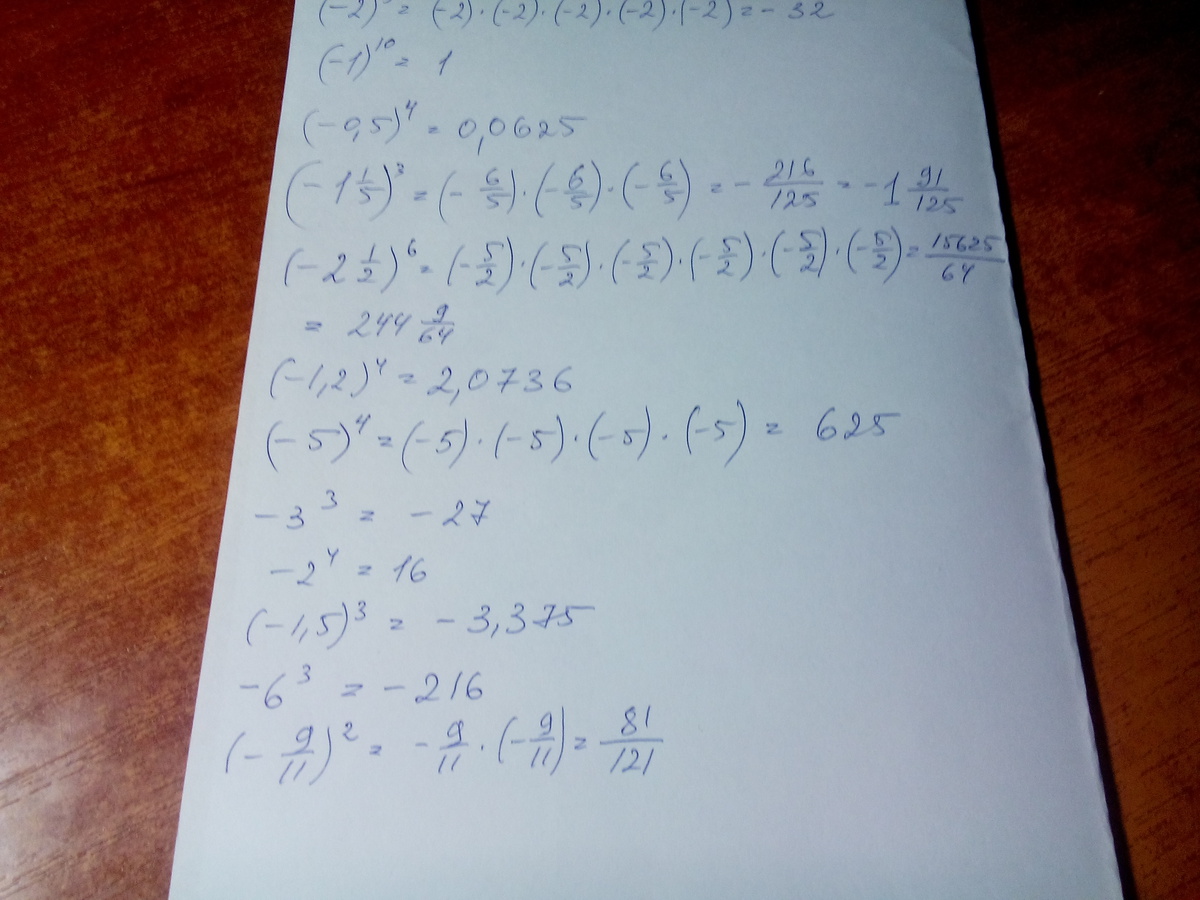 (-2)⁵ = (-2)·(-2)·(-2)·(-2)·(-2) = - 32
(-1)¹⁰ = 1
(-0,5)⁴ = 0,0625
(-1 1/5)³ = (- 6/5)·(- 6/5)·(- 6/5) = - 216/125 = -1 91/125
(-2 1/2)⁶ = (-5/2)·(-5/2)·(-5/2)·(-5/2)·(-5/2)·(-5/2) = 15625/64
= 244 9/64
(-1,2)⁴ = 2,0736
(-5)⁴ = (-5)·(-5)·(-5)·(-5) = 625
-3³ = -27
-2⁴ = 16
(-1,5)³ = -3,375
-6³ = -216
(- 9/11)² = - 9/11 · (- 9/11) = 81/121